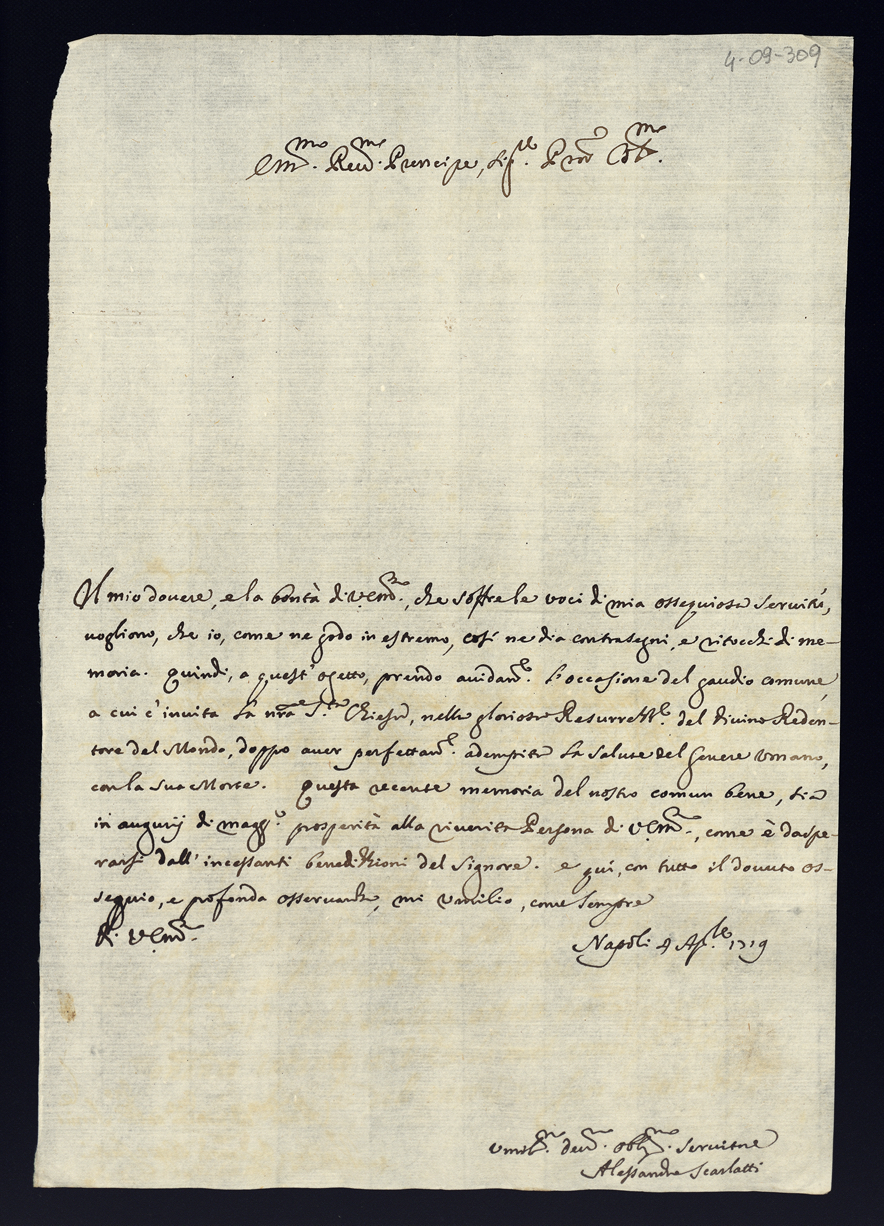 4-09-309
Em.mo Reu.mo Prencipe, Sig.re P.rone Col.mo
Il mio douere, e la bontà di V. Em.za, che soffre le voci di mia ossequiosa seruitù,
uogliono, che io, come ne godo in estremo, così ne dia contrasegni, e ritocchi di me-
moria. Quindi, a quest'ogetto, prendo auidam.te l'occasione del gaudio comune,
a cui c'inuita la n.ra S.ta Chiesa, nella gloriosa Resurrett.e del diuino Reden-
tore del Mondo, doppo auer perfettam.te adempita la salute del Genere Vmano,
con la sua Morte. Questa recente memoria del nostro comun bene, sia
in augurij di magg.r prosperità alla riuerita Persona di V. Em.za, come è da spe-
rarsi dall'incessanti benedizzioni del Signore. e qui, con tutto il douuto os-
sequio, e profonda osseruanza, mi vmilio, come sempre
Di V. Em.za
Napoli Ap.le 1719
Vmil.mo deu.mo obblig.mo seruitore
Alessandro Scarlatti